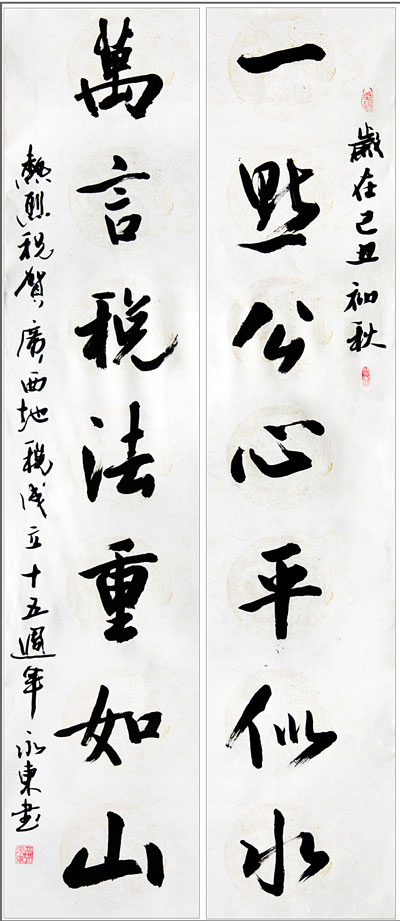 歲在己丑初秋
一點公心平似水
萬言税法重如山
熱烈祝賀廣西地税成立十五週年
永東書